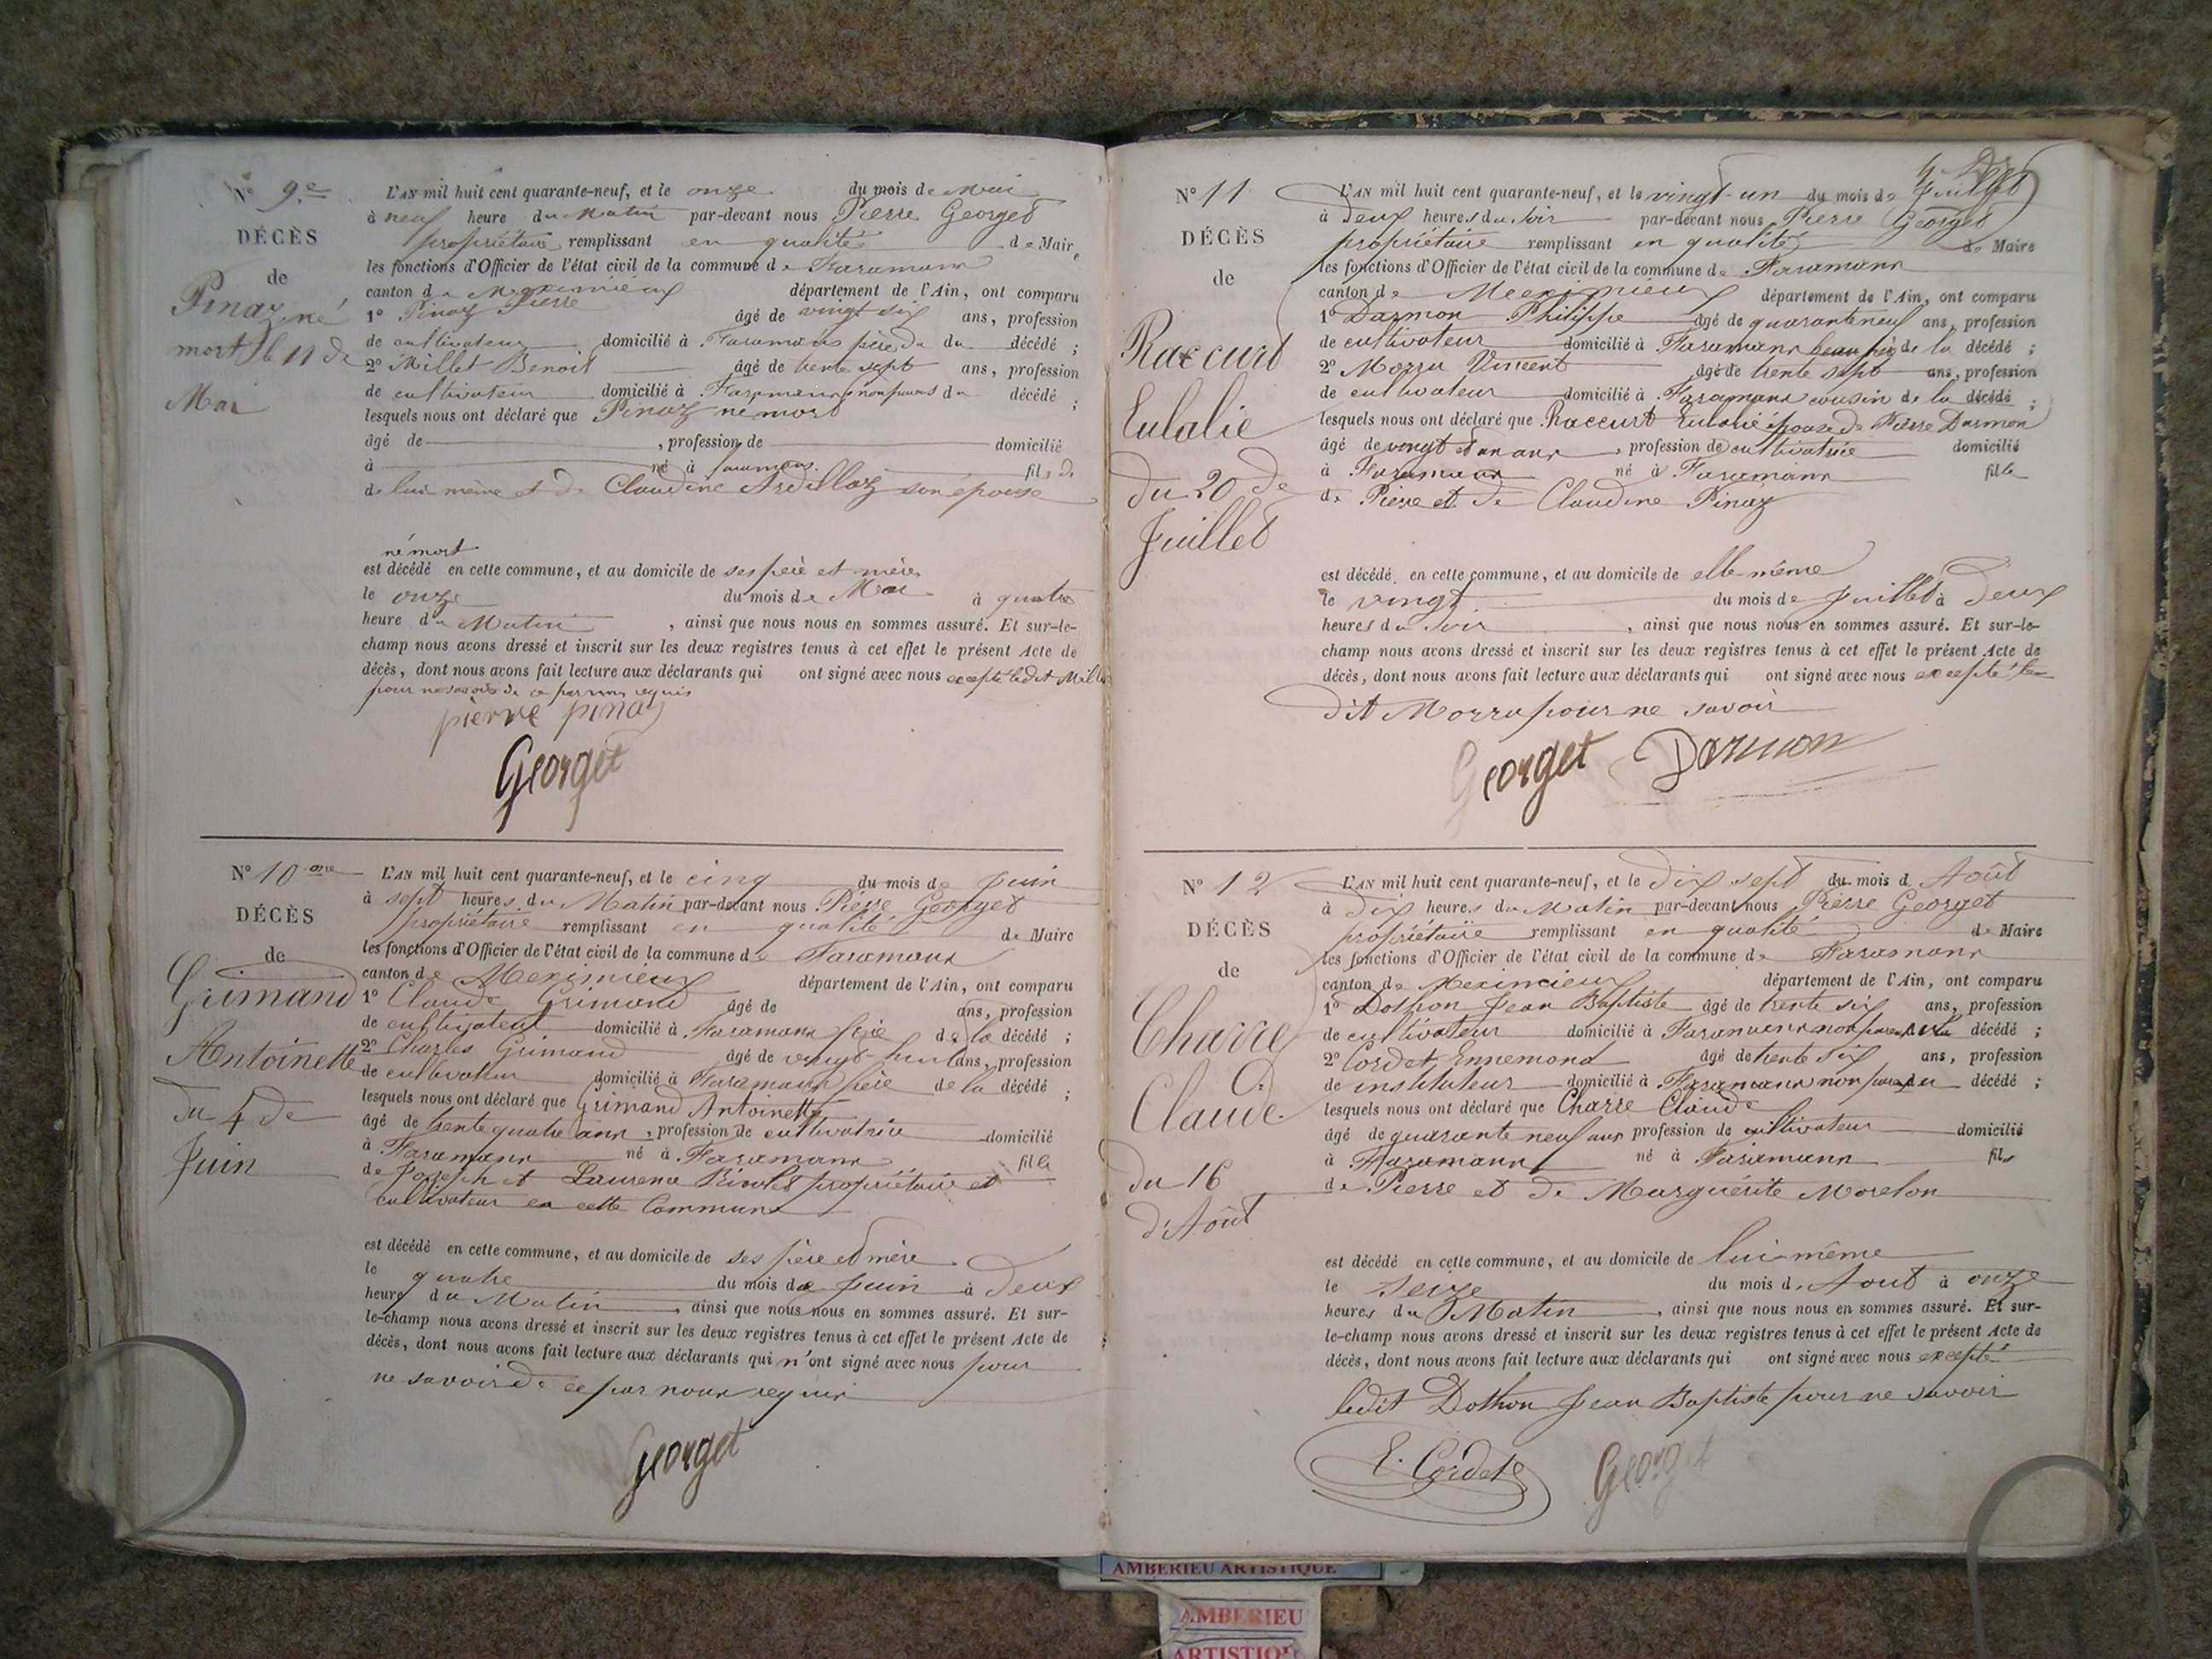 N° 9.e
DÉCÈS
de
Pinaz né
mort le 11 de
Mai
L'AN mil huit cent quarante-neuf, et le onze du mois de Mai
à neuf heure du Matin par-devant nous Pierre Georget
propriétaire remplissant en qualité de Maire
les fonctions d'Officier de l'état civil de la commune de Faramans
canton de Meximieux département de l'Ain, ont comparu
1° Pinaz Pierre âgé de vingt six ans, profession
de cultivateur domicilié à Faramans père du décédé ;
2° Millet Benoit âgé de trente sept ans, profession
de cultivateur domicilié à Faramans non parent du décédé ;
lesquels nous ont déclaré que Pinaz né mort
âgé de , profession de domicilié
à né à faramans. fils de
de lui même et de Claudine Ardillaz son épouse
né mort
est décédé en cette commune, et au domicile de ses père et mère
le onze du mois de Mai à quatre
heure du Matin , ainsi que nous nous en sommes assuré. Et sur-le-
champ nous avons dressé et inscrit sur les deux registres tenus à cet effet le présent Acte de
décès, dont nous avons fait lecture aux déclarants qui ont signé avec nous excepté ledit Millet
pour ne savoir de ce par nous requis
pierre pinaz
Georget
N° 10 me
DÉCÈS
de
Grimand
Antoinette
du 4 de
Juin
L'AN mil huit cent quarante-neuf, et le cinq du mois de Juin
à sept heures du Matin par-devant nous Pierre Georget
propriétaire remplissant en qualité de Maire
les fonctions d'Officier de l'état civil de la commune de Faramans
canton de Meximieux département de l'Ain, ont comparu
1° Claude Grimand âgé de ans, profession
de cultivateur domicilié à Faramans père de la décédé ;
2° Charles Grimand âgé de vingt-huit ans, profession
de cultivateur domicilié à Faramans frère de la décédé ;
lesquels nous ont déclaré que Grimand Antoinette
âgé de trente quatre ans , profession de cultivatrice domicilié
à Faramans né à Faramans fille
de Joseph et Laurence propriétaire et
cultivateur en cette Commune
est décédé en cette commune, et au domicile de ses père et mère
le quatre du mois de Juin à Deux
heure du Matin , ainsi que nous nous en sommes assuré. Et sur-
le-champ nous avons dressé et inscrit sur les deux registres tenus à cet effet le présent Acte de
décès, dont nous avons fait lecture aux déclarants qui n'ont signé avec nous pour
ne savoir de ce par nous requis
Georget
N° 11
DÉCÈS
de
Raccurt
Eulalie
du 20 de
Juillet
L'AN mil huit cent quarante-neuf, et le vingt-un du mois de Juillet
à Deux heures du soir par-devant nous Pierre Georget
propriétaire remplissant en qualité de Maire
les fonctions d'Officier de l'état civil de la commune de Faramans
canton de Meximieux département de l'Ain, ont comparu
1° Darmon Philippe âgé de quarante neuf ans, profession
de cultivateur domicilié à Faramans beau père de la décédé ;
2° Morru Vincent âgé de trente sept ans, profession
de cultivateur domicilié à Faramans cousin de la décédé ;
lesquels nous ont déclaré que Raccurt Eulalie épouse de Pierre Darmon
âgé de vingt et un ans , profession de cultivatrice domicilié
à Faramans né à Faramans fille
de Pierre et de Claudine Pinaz
est décédé en cette commune, et au domicile de elle-même
le vingt du mois de Juillet à Deux
heures du soir , ainsi que nous nous en sommes assuré. Et sur-le-
champ nous avons dressé et inscrit sur les deux registres tenus à cet effet le présent Acte de
décès, dont nous avons fait lecture aux déclarants qui ont signé avec nous excepté le
dit Morru pour ne savoir
Georget Darmon
N° 12
DÉCÈS
de
Charre
Claude
du 16
d'Août
L'AN mil huit cent quarante-neuf, et le Dix sept du mois d Août
à Dix heures du Matin par-devant nous Pierre Georget
propriétaire remplissant en qualité de Maire
les fonctions d'Officier de l'état civil de la commune de Faramans
canton de Meximieux département de l'Ain, ont comparu
1° Dothon Jean Baptiste âgé de trente six ans, profession
de cultivateur domicilié à Faramans non parent du décédé ;
2° Cordet Ennemond âgé de trente six ans, profession
de instituteur domicilié à Faramans non parent du décédé ;
lesquels nous ont déclaré que Charre Claude
âgé de quarante neuf ans profession de cultivateur domicilié
à Faramans né à Faramans fils
de Pierre et de Marguérite Morelon
est décédé en cette commune, et au domicile de lui-même
le seize du mois d'Aout à onze
heures du Matin , ainsi que nous nous en sommes assuré. Et sur-
le-champ nous avons dressé et inscrit sur les deux registres tenus à cet effet le présent Acte de
décès, dont nous avons fait lecture aux déclarants qui ont signé avec nous excepté
ledit Dothon Jean Baptiste pour ne savoir
E. Cordet Georget
AMBERIEU ARTISTIQUE
AMBERIEU
ARTISTIQUE